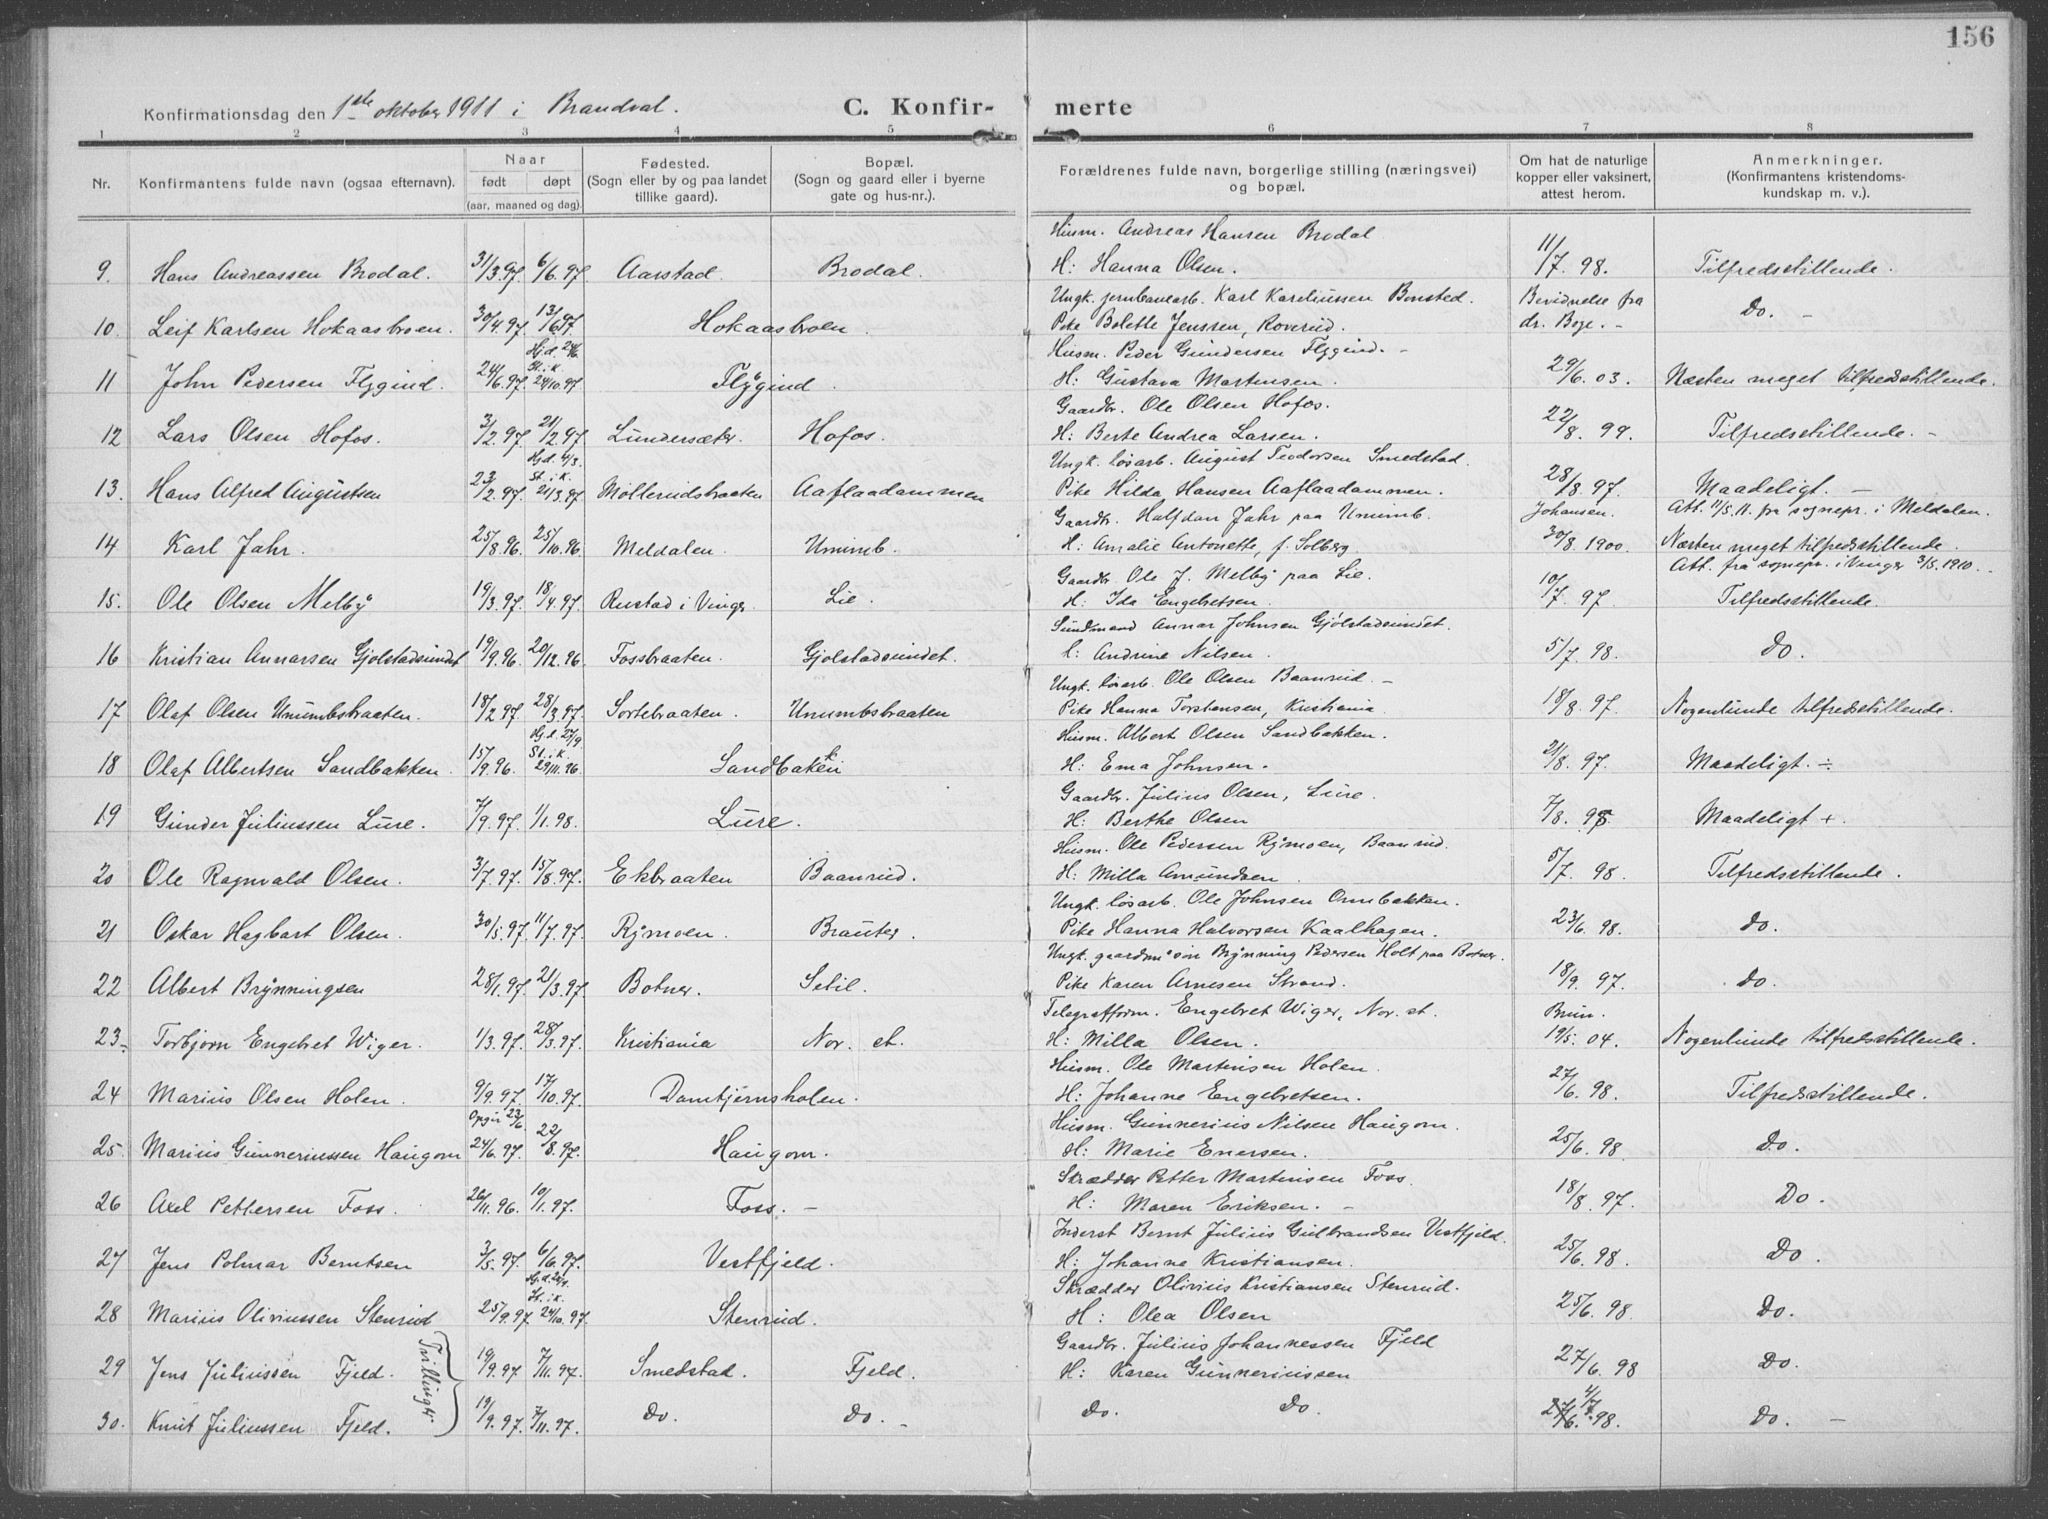 156
Konfirmationsdag den 1ste oktober 1911 i Brandval. C. Konfirmerte
1 2 3 4 5 6 7 8
Nr. Konfirmantens fulde navn (ogsaa efternavn). Naar født døpt (aar, maaned og dag). Fødested. (Sogn eller by og paa landet tillike gaard). Bopæl. (Sogn og gaard eller i byerne gate og hus-nr.). Forældrenes fulde navn, borgerlige stilling (næringsvei) og bopæl. Om hat de naturlige kopper eller vaksinert, attest herom. Anmerkninger. (Konfirmantens kristendomskundskap m. v.).
Husm. Andreas Hansen Brodal
9. Hans Andreassen Brodal. 31/3.97. 6/6.97. Aarstad. Brodal. H: Hanna Olsen. 11/7. 98. Tilfredsstillende.
Ungk. jernbanearb. Karl Kareliussen Bonsted. Bevidnelse fra
10. Leif Karlsen Hokaasbroen. 30/4.97. 13/6.97. Hokaasbroen. Pike Bolette Jenssen, Roverud. dr. Boge. - Do. -
Hjd. 24/6. Husm. Peder Gundersen Flygind. -
St. i k.
11 John Pedersen Flygind. 24/6.97. 24/10.97 Flygind. H: Gustava Martinsen. 29/6. 03. Næsten meget tilfredsstillende.
Gaardbr. Ole Olsen Hofos.
12 Lars Olsen Hofos. 3/2.97. 21/2.97. Lundersæter. Hofos. H: Berte Andrea Larsen. 22/8. 99. Tilfredsstillende. -
Hjd. 4/3. Ungk. løsarb. August Teodorsen Smedstad.
St. i k.
13. Hans Alfred Augustsen 23/2.97. 21/3.97 Møllerudsbraaten Aaflaadammen Pike Hilda Hansen Aaflaadammen. 28/8. 97. Maadeligt. -
Gaardbr. Halfdan Jahr paa Unumb. Johansen. Att. 11/5.11. fra sognepr. i Meldalen.
14 Karl Jahr. 25/8.96. 25/10.96 Meldalen. Unumb. H: Amalie Antonette, f. Solberg 30/8. 1900. Næsten meget tilfredsstillende.
Gaardbr Ole J. Melby paa Lie. Att. fra sognepr. i Vinger 3/5.1910.
15. Ole Olsen Melby 19/3.97. 18/4.97. Rustad i Vinger. Lie. H: Ida Engebretsen. 10/7. 97 Tilfredsstillende.
Sundmand Annar Johnsen Gjølstadsundet.
16 Kristian Annarsen Gjølstadsundet 19/9.96. 20/12.96 Fossbraaten. Gjølstadsundet. H: Andrine Nilsen. 5/7. 98. Do.
Ungk. løsarb. Ole Olsen Baanrud. -
17 Olaf Olsen Unumbsbraaten. 18/2.97. 28/3.97. Sortebraaten. Unumbsbraaten Pike Hanna Torstensen, Kristiania. 18/8. 97. Nogenlunde tilfredsstillende.
Hj.d. 27/9. Husm. Albert Olsen Sandbakken.
St. i k.
18 Olaf Albertsen Sandbakken. 15/9.96. 29/11.96. Sandbakken H: Ema Johnsen. 21/8. 97. Maadeligt. ÷
Gaardbr. Julius Olsen, Lure.
19 Gunder Juliussen Lure. 7/9.97. 1/1.98. Lure. H: Berthe Olsen 7/8. 98 Maadeligt +
Husm. Ole Pedersen Rymoen, Baanrud.
20 Ole Ragnvald Olsen. 3/7.97. 15/8.97. Ekbraaten Baanrud. H: Milla Amundsen. 5/7. 98. Tilfredsstillende.
Ungk. løsarb. Ole Johnsen Ormbakken.
21 Oskar Hagbart Olsen. 30/5.97. 11/7.97. Rymoen. Brauter. Pike Hanna Halvorsen Kaalhagen. 23/6. 98. Do.
Ungk. gaardm.søn Brynning Pedersen Holt paa Botner.
22 Albert Brynningsen 28/1.97. 21/3.97. Botner. Setil. Pike Karen Arnesen Strand. 18/9. 97. Do.
Telegrafform. Engebret Wiger, Nor. st. Brun.
23. Torbjørn Engebret Wiger. 1/3.97. 28/3.97. Kristiania Nor. st. H: Milla Olsen. 19/5. 04. Nogenlunde tilfredsstillende.
Husm. Ole Martinsen Holen.
24 Marius Olsen Holen. 9/9.97. 17/10.97. Damtjernsholen. H: Johanne Engebretsen. 27/6. 98. Tilfredsstillende.
Opgit 23/6 Husm. Gunnerius Nilsen Haugom.
25. Marius Gunneriussen Haugom 24/6.97. 22/8.97. Haugom. H: Marie Enersen. 25/6. 98. Do.
Skrædder Petter Martinsen Foss.
26 Axel Pettersen Foss. 26/11.96. 10/1.97. Foss. - H: Maren Eriksen. - 18/8. 97. Do.
Inderst Bernt Julius Gulbrandsen Vestfjeld.
27 Jens Polmar Berntsen 3/5.97. 6/6.97. Vestfjeld. H: Johanne Kristiansen. 25/6. 98. Do
Skrædder Olivius Kristiansen Stenrud.
St. i k.
28 Marius Oliviussen Stenrud 25/9.97. 24/10.97. Stenrud. H: Olea Olsen 25/6. 98. Do.
Tvillinger Gaardbr. Julius Johannessen Fjeld
29 Jens Juliussen Fjeld. 19/9.97. 7/11.97. Smedstad. Fjeld. H: Karen Gunneriussen 27/6. 98 Do.
30. Knut Juliussen Fjeld. 19/9.97. 7/11.97. Do. Do. - Do. Do. 27/6. 98. Do. -